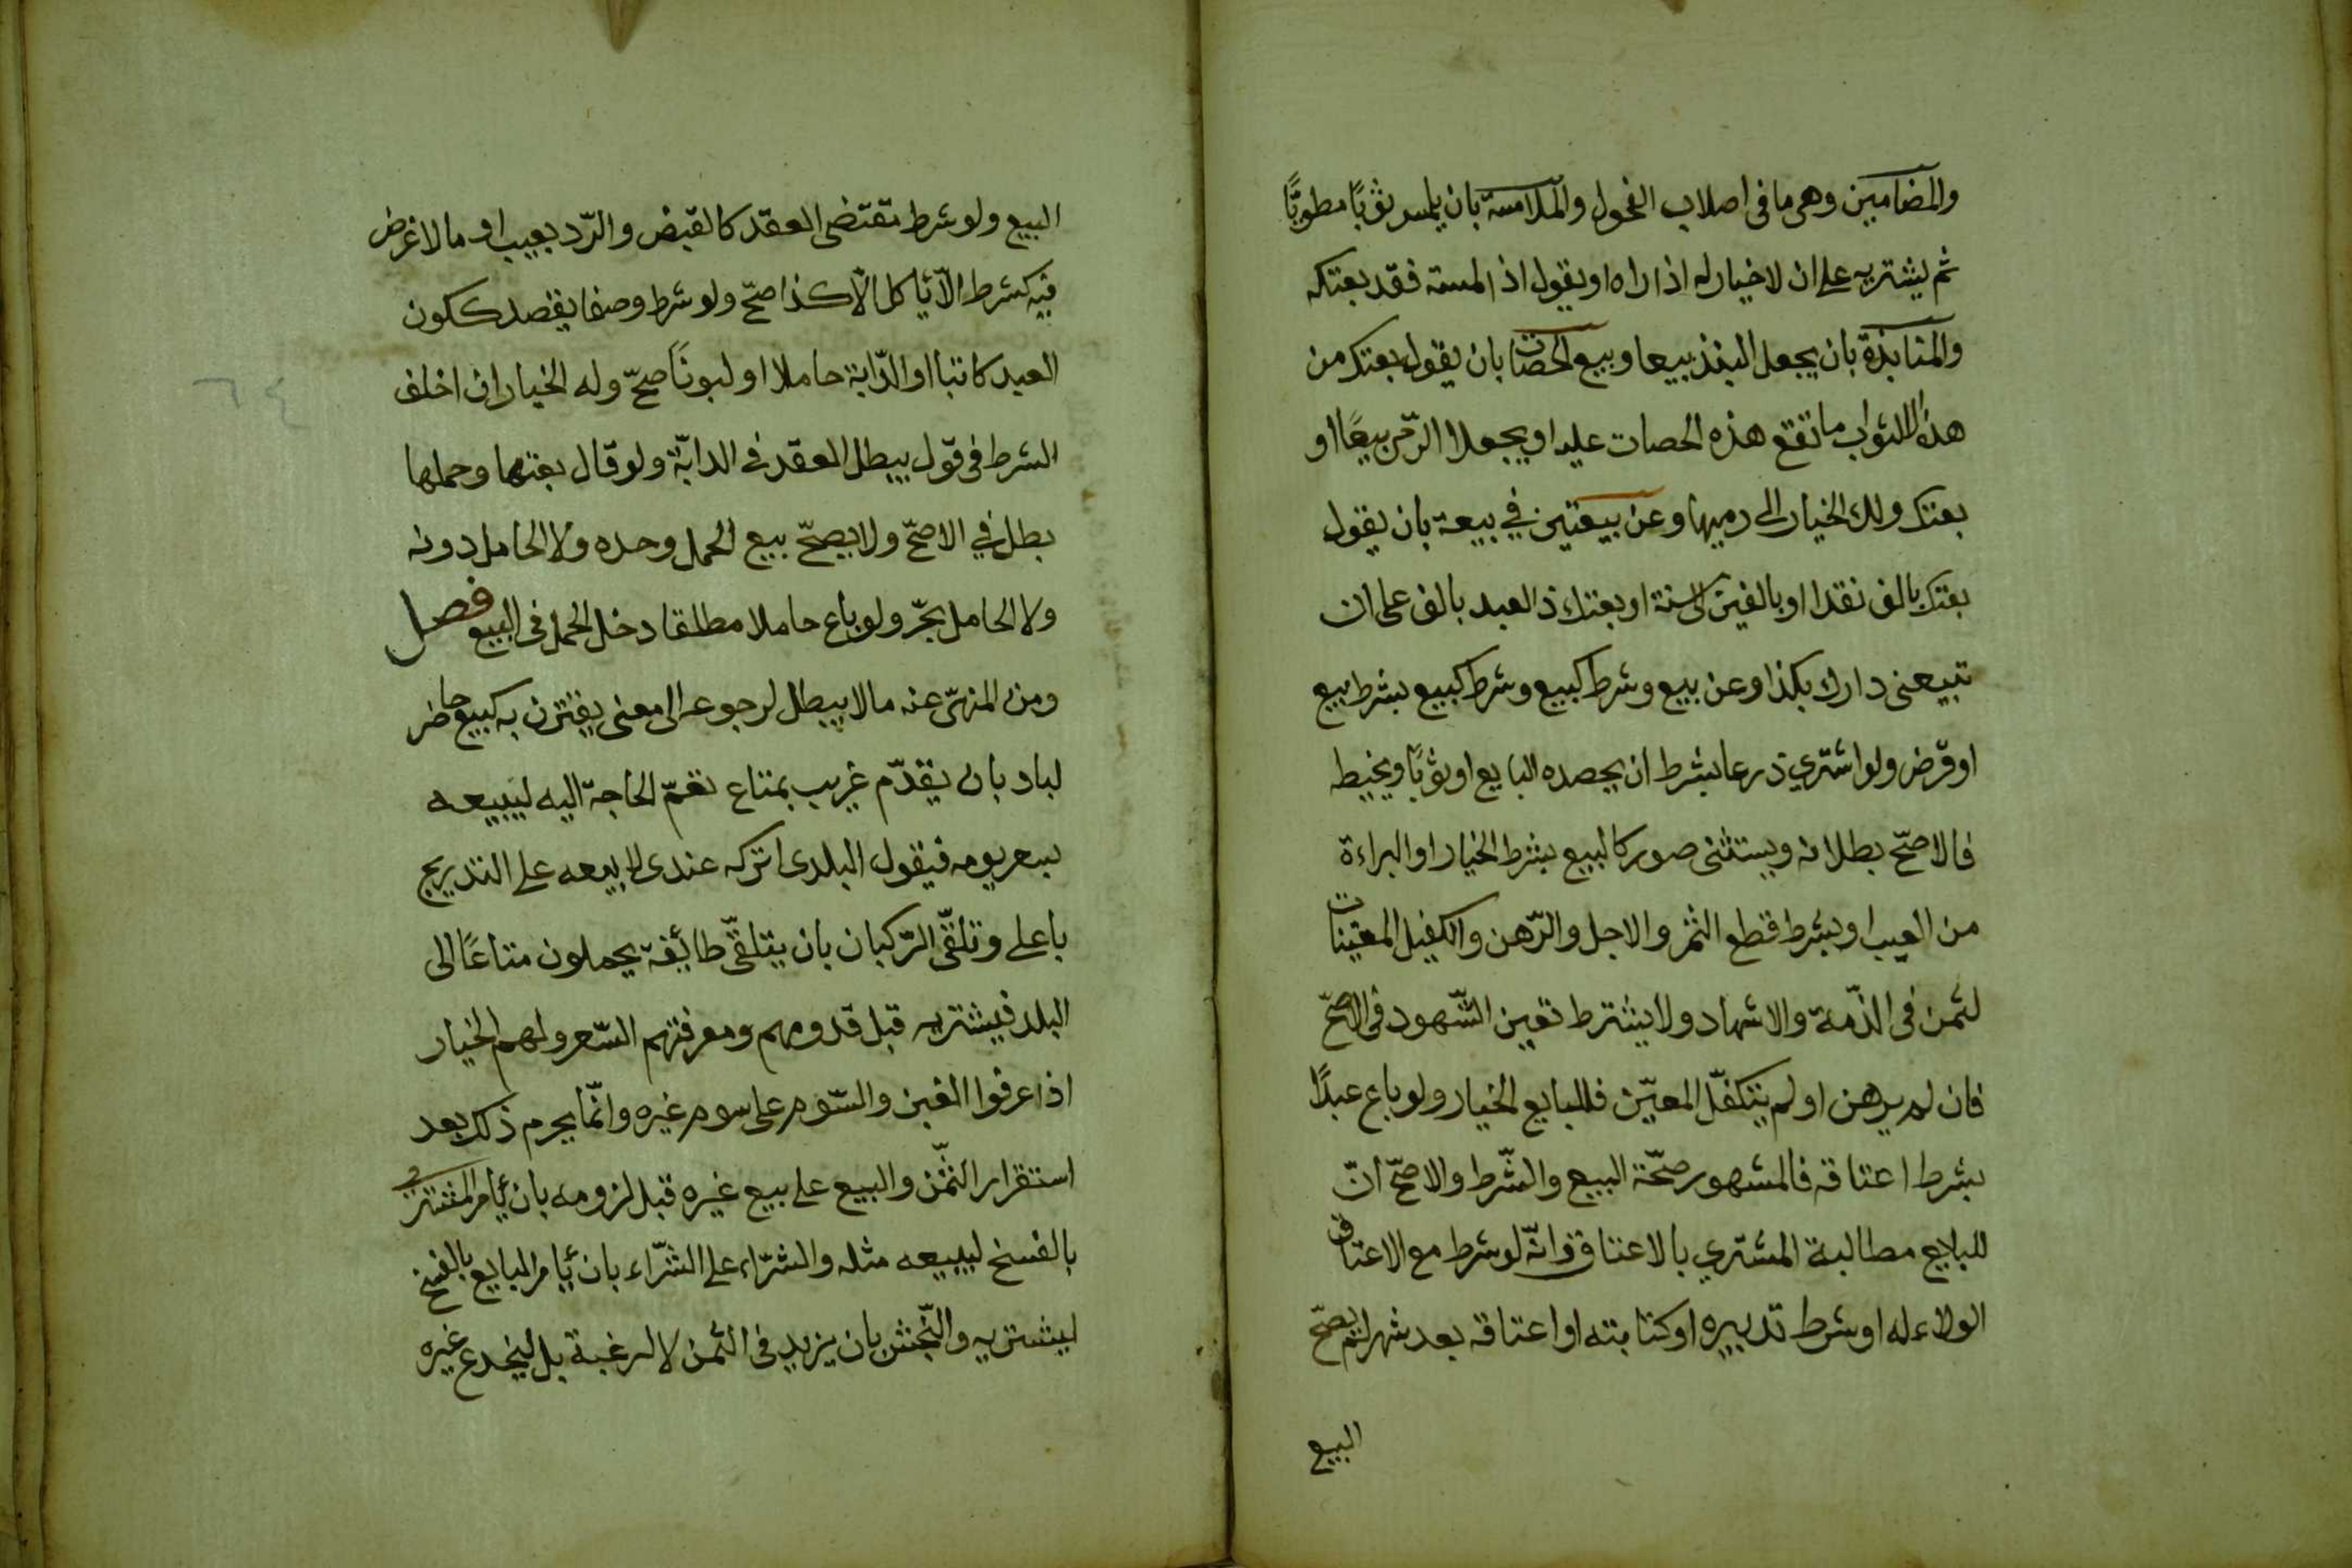 والمضامين وهى ما فى اصلاب الفحول والملامسة بان يلمس ثوبًا مطويًّا
ثم يشتريه على ان لا خيار له اذا راه او يقول اذا لمسته فقد بعتكه
والمنابذة بان يجعل النبذ بيعا وبيع الحصات بان يقول بعتك من
هذه الاثواب ما تقع هذه الحصات عليه او يجعلا الرمى بيعًا او
بعتك ولك الخيار الى رميها وعن بيعتين في بيعة بان يقول
بعتك بالف نقدا او بالفين الى سنة او بعتك ذا العبد بالف على ان
تبيعنى دارك بكذا وعن بيع وشرط كبيع وشرط كبيع بشرط بيع
او قرض ولو اشتري زرعا بشرط ان يحصده البايع او ثوبًا ويخيطه
فالاصحّ بطلانه ويستثنى صور كالبيع بشرط الخيار او البراءة
من العيب او بشرط قطع الثمر والاجل والرّهن والكفيل المعيّنات
لثمن فى الذّمة والاشهاد ولا يشترط تعين الشّهود فى الاصحّ
فان لم يرهن او لم يتكفّل المعيّن فللبايع الخيار ولو باع عبدًا
بشرط اعتاقه فالمشهور صحّة البيع والشّرط والاصحّ انّ
للبايع مطالبة المشتري بالاعتاق وانّه لو شرط مع الاعتاق
الولاء له او شرط تدبيره او كتابته او اعتاقه بعد شهر لم يصحّ
البيع
البيع ولو شرط تقتضى العقد كالقبض والرّد بعيب او ما لا غرض
فيه كشرط الّا يأكل الّا كذا صحّ ولو شرط وصفا يقصد ككون
العبد كاتبا او الدّابة حاملا او لبونًا صحّ وله الخيار ان اخلف
الشرط فى قول يبطل العقد فى الدابّة ولو قال بعتها وحملها
بطل في الاصحّ ولا يصحّ بيع الحمل وحده ولا الحامل دونه
ولا الحامل بحّر ولو باع حاملا مطلقا دخل الحمل فى البيع فصل
ومن المنهىّ عنه ما لا يبطل لرجوعه الى معنى يقترن به كبيع حاضر
لباد بان يقدّم غريب بمتاع تعمّ الحاجة اليه ليبيعه
بسعر يومه فيقول البلدى اتركه عندى لابيعه على التدريج
باعلى وتلقّى الرّكبان بان يتلقّى طائفة يحملون متاعًا الى
البلد فيشتريه قبل قدومهم ومعرفتهم السّعر ولهم الخيار
اذا عرفوا الغبن والسّوم على سوم غيره وانّما يحرم ذلك بعد
استقرار الثّمن والبيع على بيع غيره قبل لزومه بان يأمر المشترى
بالفسخ ليبيعه مثله والشّراء على الشّراء بان يأمر البايع بالفسخ
ليشتريه والنّجش بان يزيد فى الثمن لا لرغبة بل ليخدع غيره
٦٤